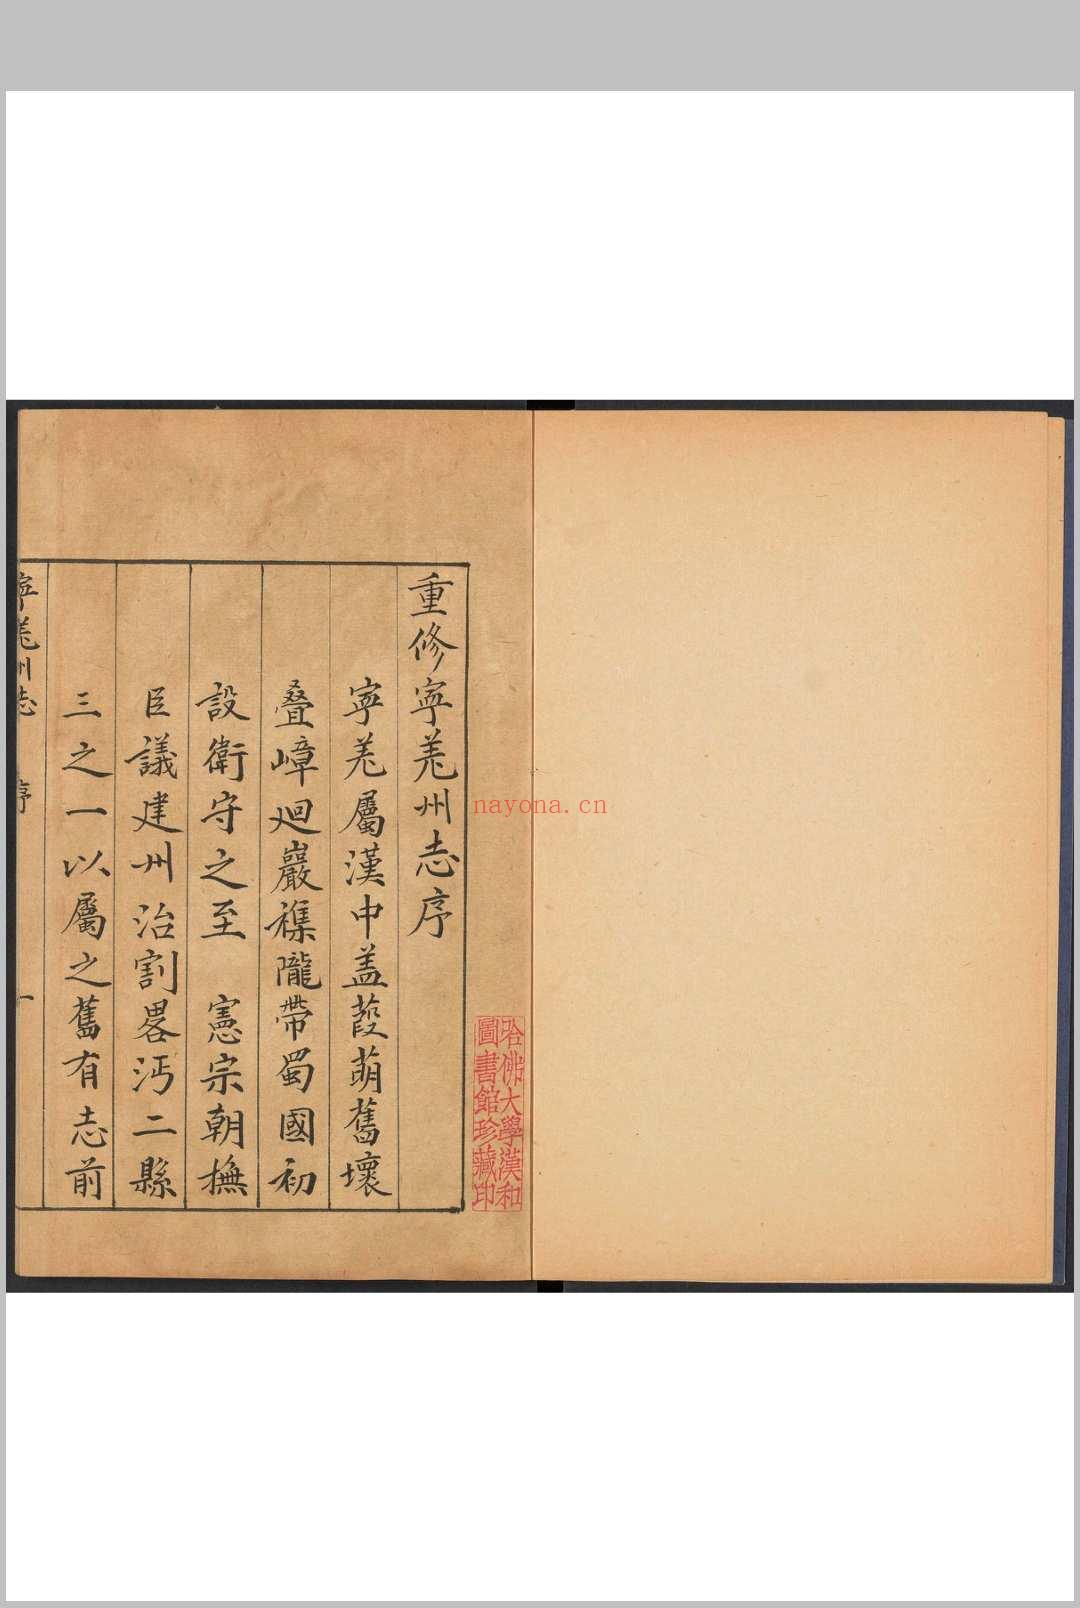 重修寜羌州志序
寜羌屬漢中盖葭萌舊壞
叠嶂廻巖襍隴帶蜀國初
設衛守之至　憲宗朝撫
臣議建州治割畧沔二縣
三之一以屬之舊有志前
寜羌州志　序　一
哈佛大學漢和
圖書館珍藏印
nayona.cn